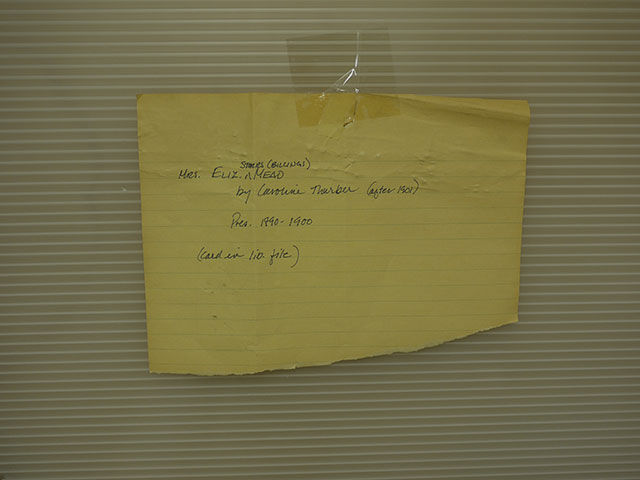 STORRS (BILLINGS)
MRS. ELIZ. ^ MEAD
by Caroline Thurber (after 1901)
Pres. 1890-1900
(card in lib. file)